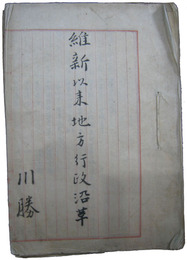 維新以来地方行政沿革
川勝